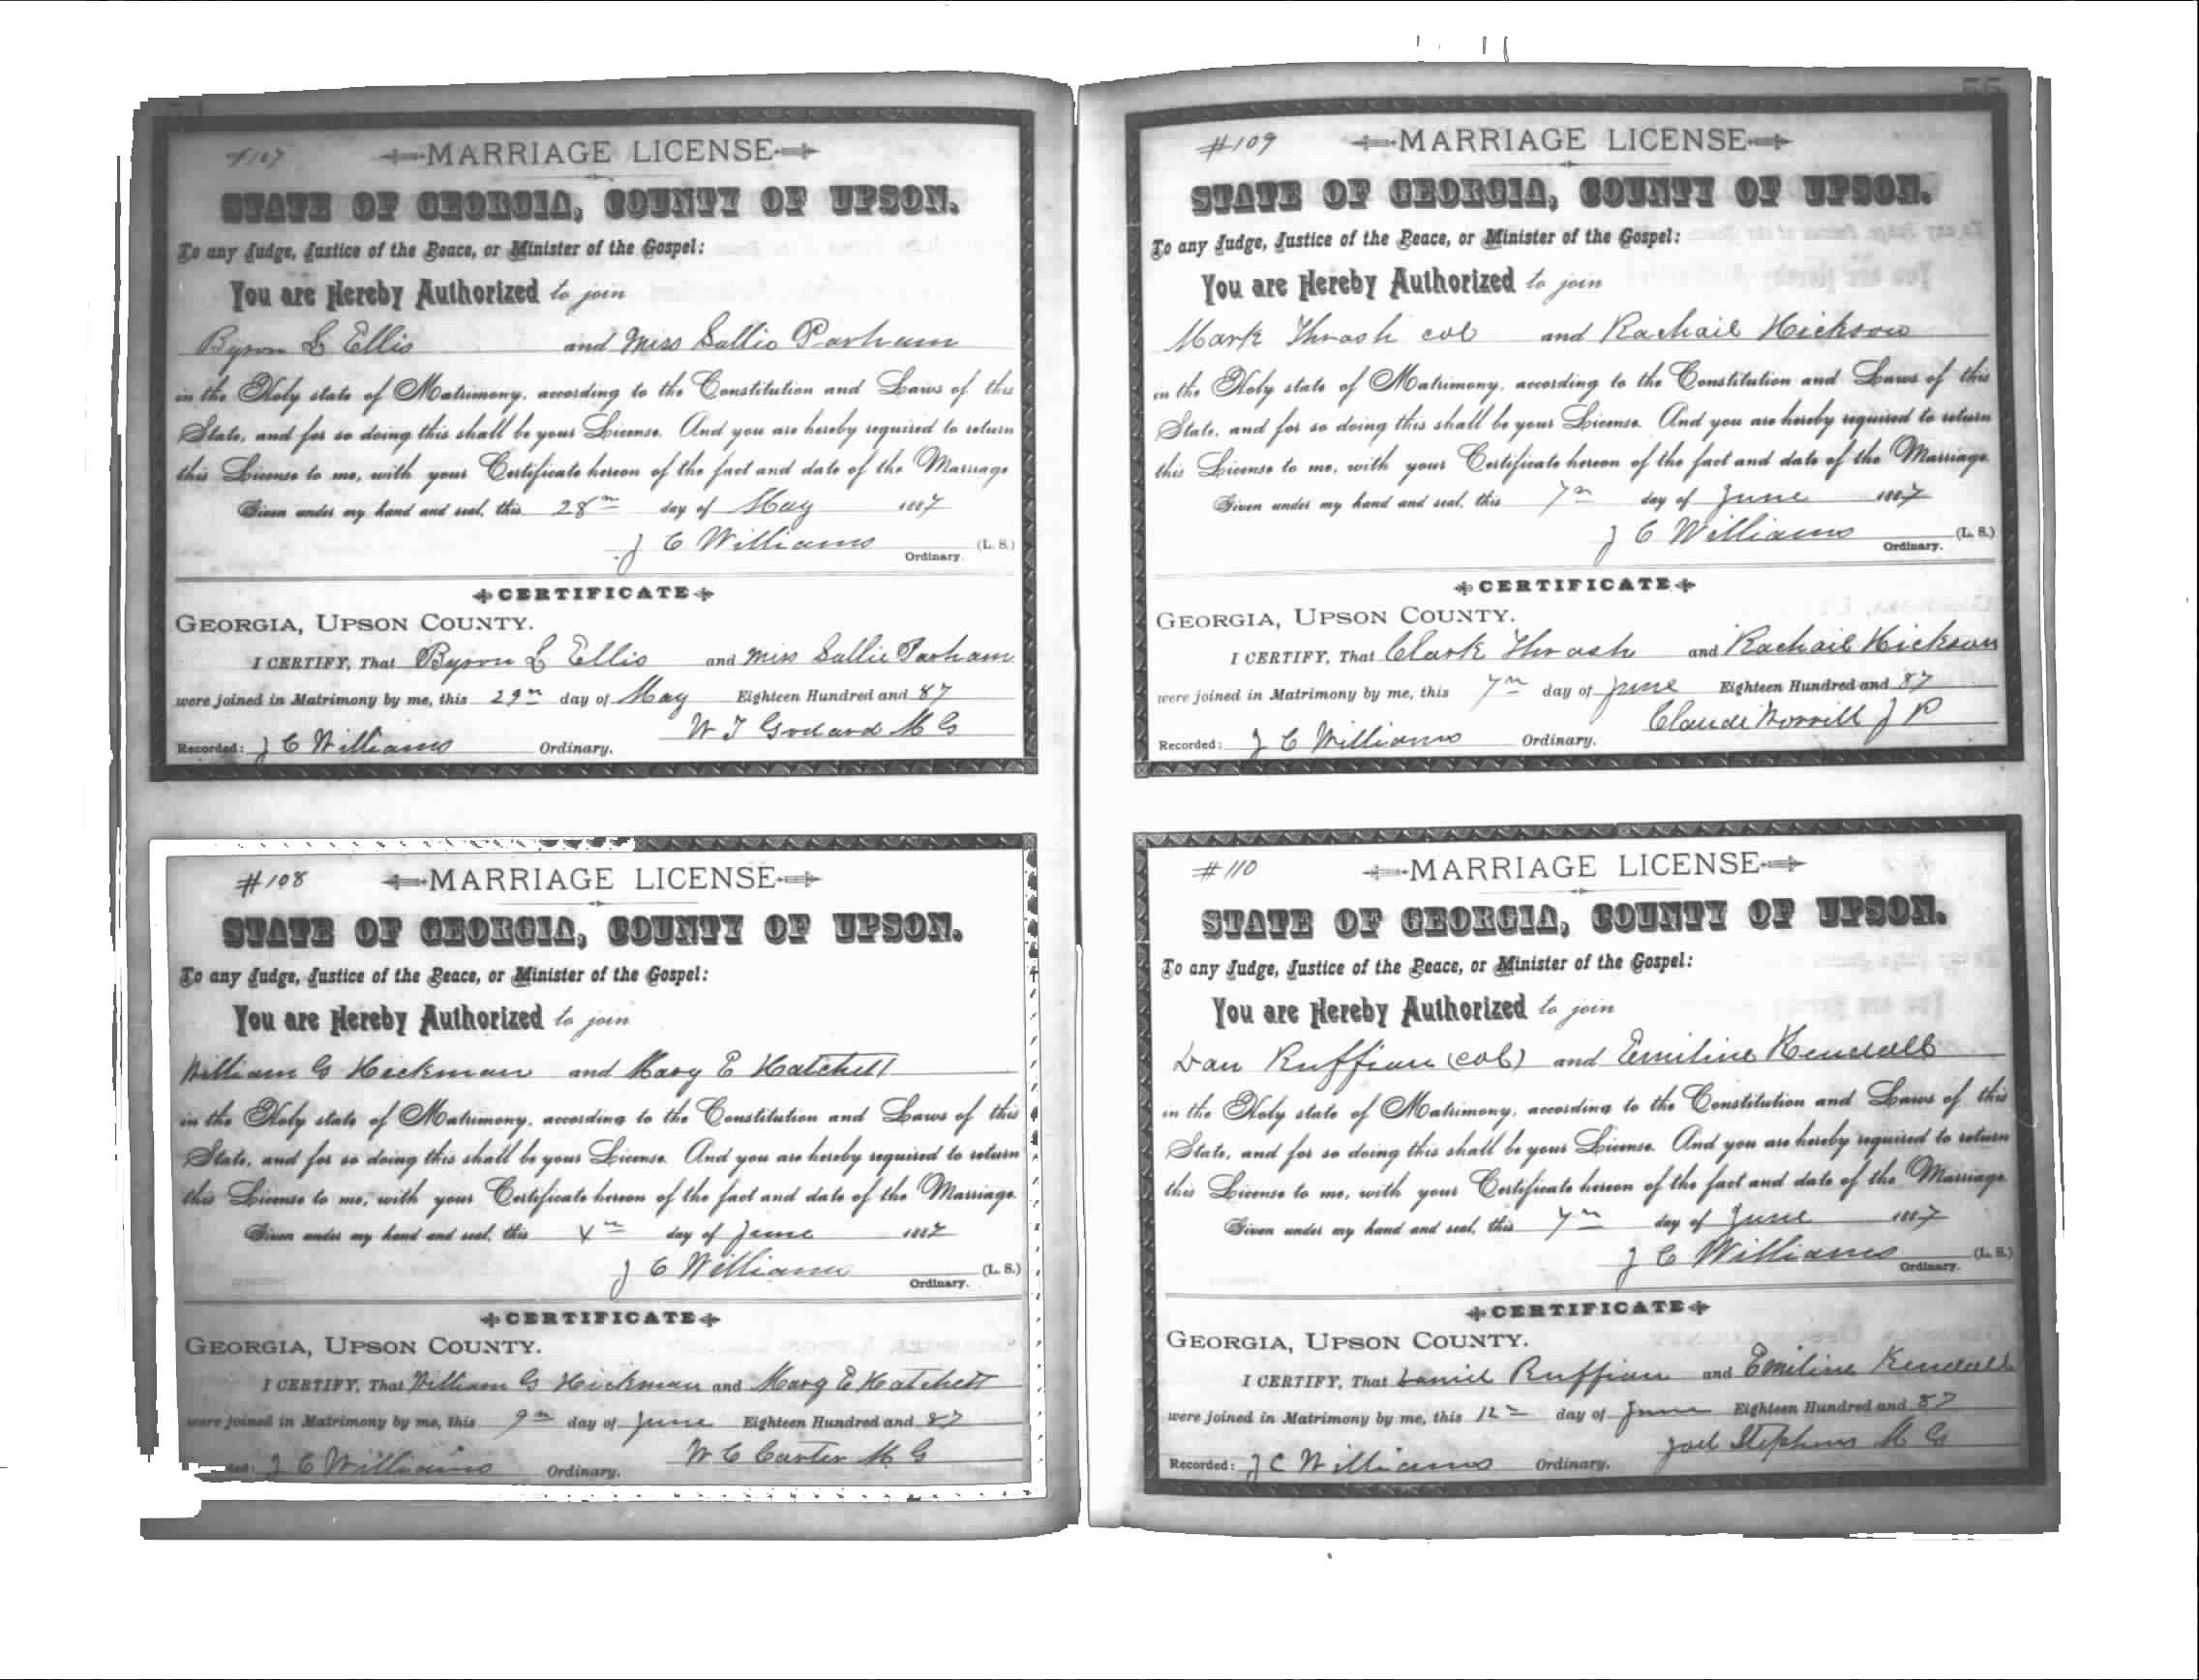 #107 MARRIAGE LICENSE
STATE OF GEORGIA, COUNTY OF UPSON.
To any Judge, Justice of the Peace, or Minister of the Gospel:
You are Hereby Authorized to join
Byron L Ellis and Miss Sallie Parham
in the Holy state of Matrimony, according to the Constitution and Laws of this
State, and for so doing this shall be your License. And you are hereby required to return
this License to me, with your Certificate hereon of the fact and date of the Marriage.
Given under my hand and seal, this 28th day of May 1887
J C Williams (L. S.)
Ordinary.
CERTIFICATE
GEORGIA, UPSON COUNTY.
I CERTIFY, That Byron L Ellis and Miss Sallie Parham
were joined in Matrimony by me, this 29th day of May Eighteen Hundred and 87
W T Godard M G
Recorded: J C Williams Ordinary.
#108 MARRIAGE LICENSE
STATE OF GEORGIA, COUNTY OF UPSON.
To any Judge, Justice of the Peace, or Minister of the Gospel:
You are Hereby Authorized to join
William G Hickman and Mary E Hatchett
in the Holy state of Matrimony, according to the Constitution and Laws of this
State, and for so doing this shall be your License. And you are hereby required to return
this License to me, with your Certificate hereon of the fact and date of the Marriage.
Given under my hand and seal, this 4th day of June 1887
J C Williams (L. S.)
Ordinary.
CERTIFICATE
GEORGIA, UPSON COUNTY.
I CERTIFY, That William G Hickman and Mary E Hatchett
were joined in Matrimony by me, this 9th day of June Eighteen Hundred and 87
W C Carter M G
J C Williams Ordinary.
55
#109 MARRIAGE LICENSE
STATE OF GEORGIA, COUNTY OF UPSON.
To any Judge, Justice of the Peace, or Minister of the Gospel:
You are Hereby Authorized to join
Mark Thrash col and Rachail Hickson
in the Holy state of Matrimony, according to the Constitution and Laws of this
State, and for so doing this shall be your License. And you are hereby required to return
this License to me, with your Certificate hereon of the fact and date of the Marriage.
Given under my hand and seal, this 7th day of June 1887
J C Williams (L. S.)
Ordinary.
CERTIFICATE
GEORGIA, UPSON COUNTY.
I CERTIFY, That Clark Thrash and Rachail Hickson
were joined in Matrimony by me, this 7th day of June Eighteen Hundred and 87
Claude Worrill J P
Recorded: J C Williams Ordinary.
#110 MARRIAGE LICENSE
STATE OF GEORGIA, COUNTY OF UPSON.
To any Judge, Justice of the Peace, or Minister of the Gospel:
You are Hereby Authorized to join
Dan Ruffian (col) and Emiline Kendall
in the Holy state of Matrimony, according to the Constitution and Laws of this
State, and for so doing this shall be your License. And you are hereby required to return
this License to me, with your Certificate hereon of the fact and date of the Marriage.
Given under my hand and seal, this 7th day of June 1887
J C Williams (L. S.)
Ordinary.
CERTIFICATE
GEORGIA, UPSON COUNTY.
I CERTIFY, That Daniel Ruffian and Emiline Kendall
were joined in Matrimony by me, this 12th day of June Eighteen Hundred and 87
Joel Stephens M G
Recorded: J C Williams Ordinary.